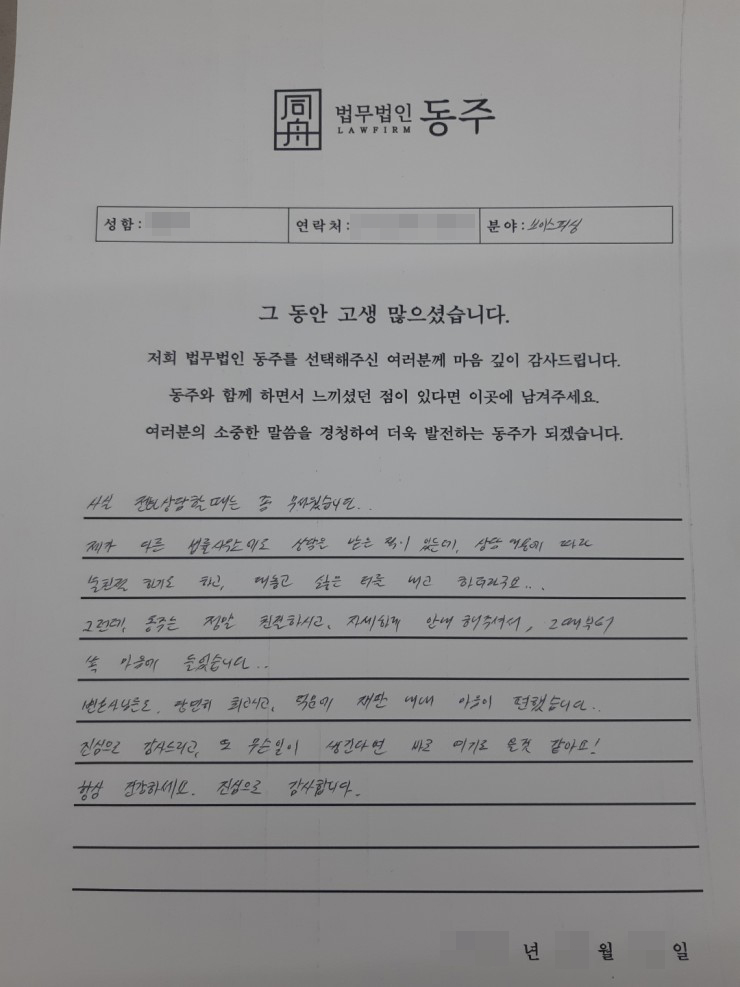 同舟 법무법인 동주
LAWFIRM
성함: 연락처: 분야: 보이스피싱
그 동안 고생 많으셨습니다.
저희 법무법인 동주를 선택해주신 여러분께 마음 깊이 감사드립니다.
동주와 함께 하면서 느끼셨던 점이 있다면 이곳에 남겨주세요.
여러분의 소중한 말씀을 경청하여 더욱 발전하는 동주가 되겠습니다.
사실 전화상담할때는 좀 무서웠습니다..
제가 다른 법률사무소에도 상담은 받은 적이 있는데, 상담 비용에 따라
하기도 하고, 대놓고 싫은 티를 내고 하더라구요...
그런데, 동주는 정말 친절하시고, 자세하게 안내해주셔서, 그때부터
쏙 마음에 들었습니다..
변호사님들도 당연히 최고시고, 덕분에 재판 내내 마음이 편했습니다..
진심으로 감사드리고, 또 무슨일이 생긴다면 바로 여기로 올것 같아요!
항상 건강하세요. 진심으로 감사합니다.
년 월 일